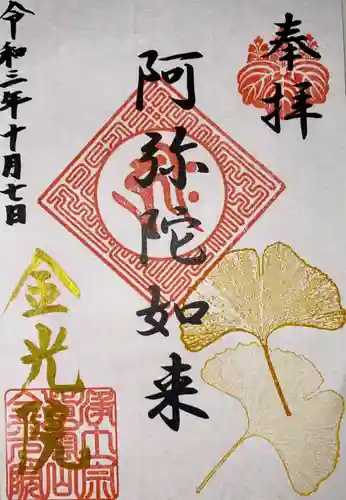 奉拝
阿弥陀如来
令和三年十月七日
金光院